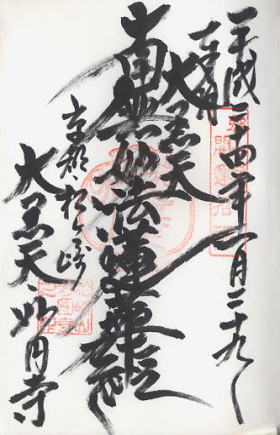 平成二十四年一月二十九日
大黒天
南無妙法蓮華経
京都松ヶ崎
大黒天 妙円寺